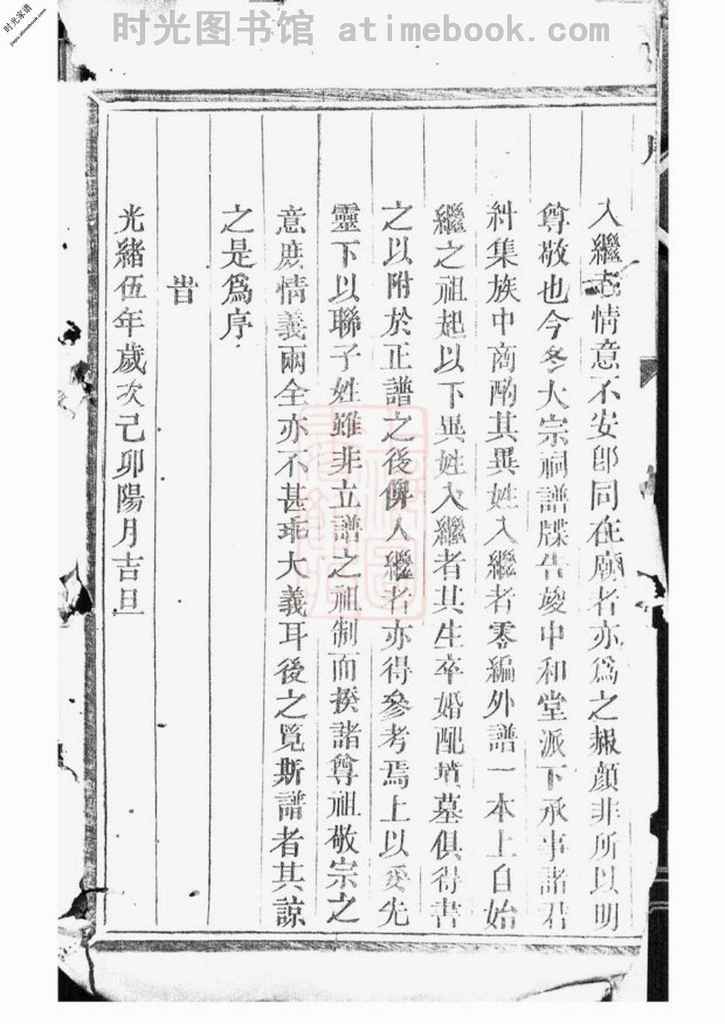 时光图书馆 atimebook.com
时光家谱
入繼者情意不安卽同在廟者亦爲之赧顔非所以明
尊敬也今冬大宗祠譜牒告竣中和堂派下承事諸君
糾集族中商酌其異姓入繼者零編外譜一本上自始
繼之祖起以下異姓入繼者其生卒婚配墳墓俱得書
之以附於正譜之後俾入繼者亦得參考焉上以妥先
靈下以聯子姓雖非立譜之祖制而揆諸尊祖敬宗之
意庶情義兩全亦不甚乖大義耳後之覓斯譜者其諒
之是爲序
旹
光緒伍年歲次己卯陽月吉旦